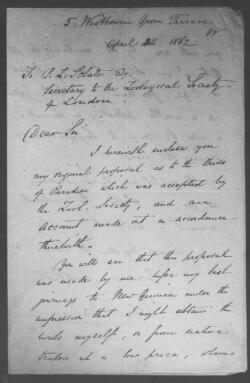 5, Westbourne Grove Terrace
W
April 24. 1862
To P. L. Sclater Esq.
Secretary to the Zoological Society
of London.
Dear Sir
I herewith enclose you
my original proposal as to the Birds
of Paradise which was accepted by
the Zool. Society, and an
account made out in accordance
therewith.
You will see that this proposal
was made by me, before my last
journey to New Guinea under the
impression that I might obtain the
birds myself, or from native
traders at a low price,